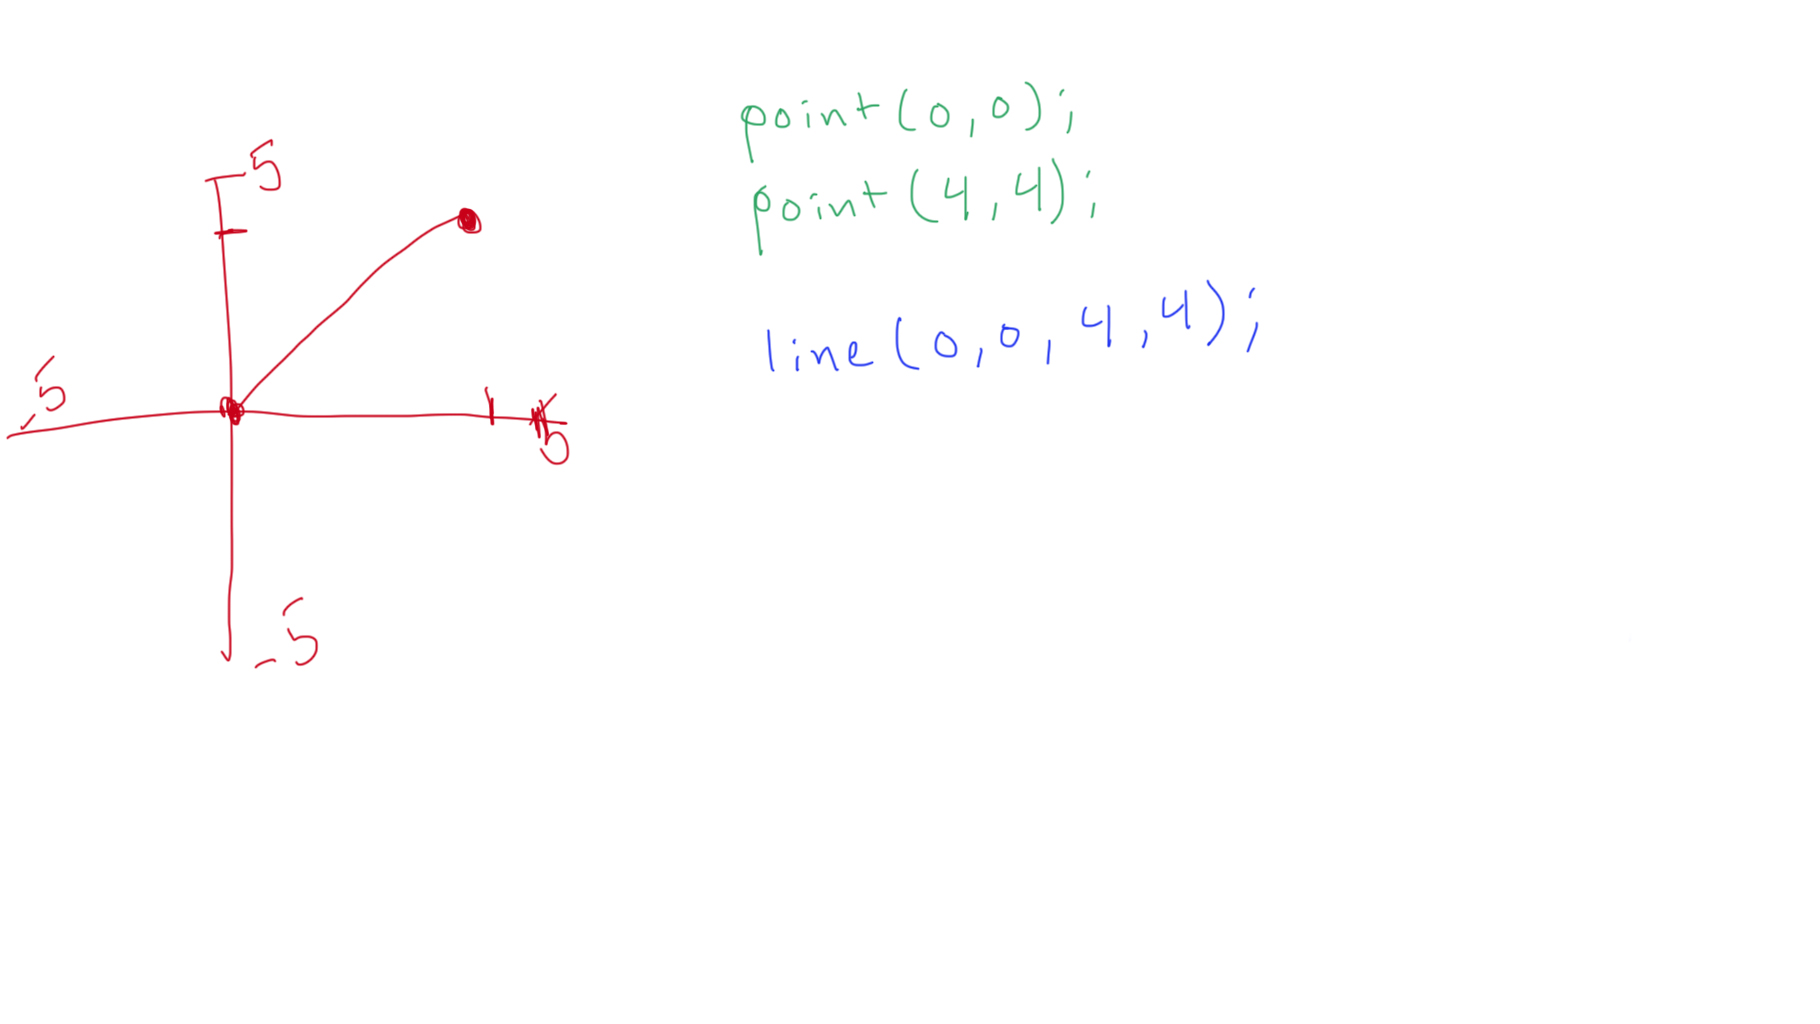 5
-5
5
-5
point(0,0);
point(4,4);
line(0,0,4,4);